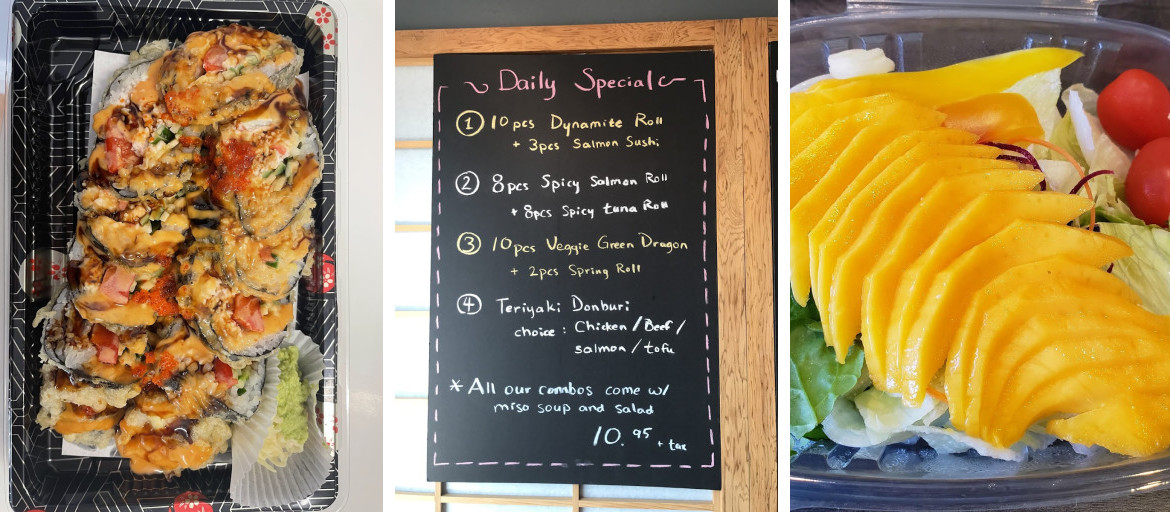 Daily Specials
① 10pcs Dynamite Roll
+ 3pcs Salmon Sushi
② 8pcs Spicy Salmon Roll
+ 8pcs Spicy tuna Roll
③ 10pcs Veggie Green Dragon
+ 2pcs Spring Roll
④ Teriyaki Donburi
choice : Chicken / Beef /
salmon / tofu
* All our combos come w/
miso soup and salad
10.95 + tax